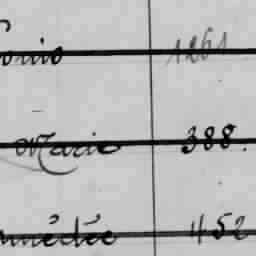 onio 1261
Marie 388.
médée 452